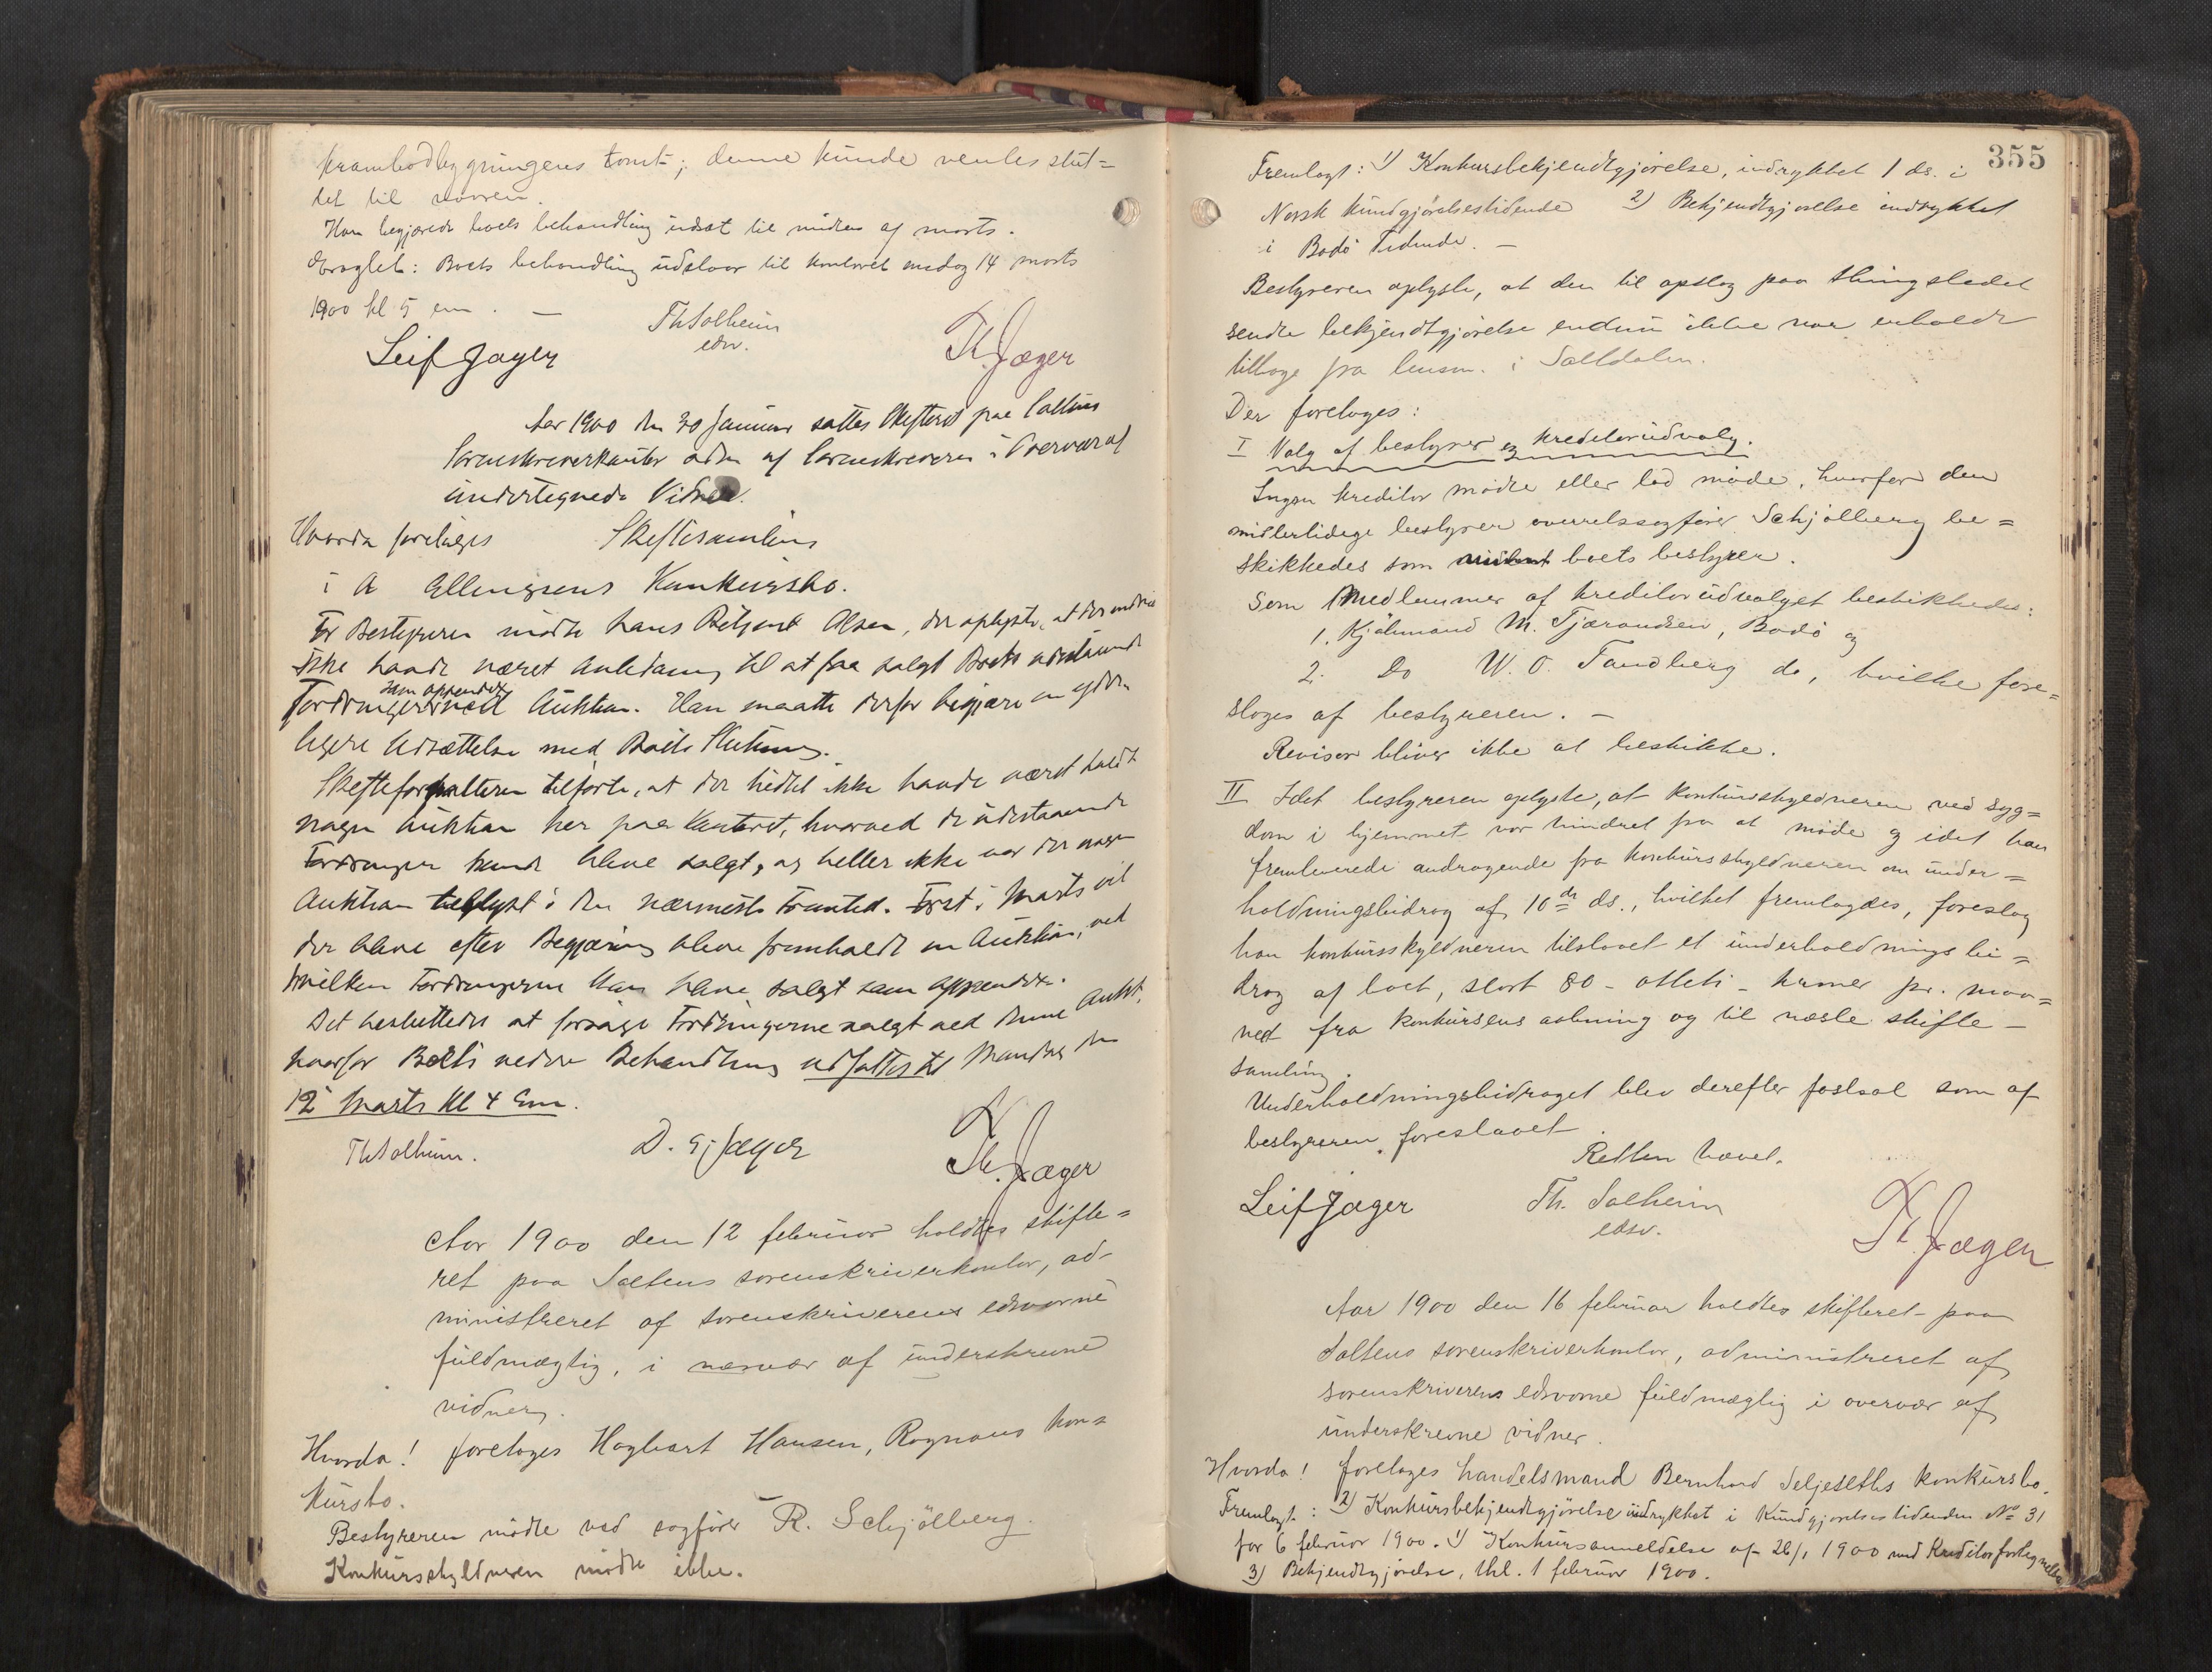 krambodbygningens tomt; denne kunde ventes slut=
tet til vaaren.
Han begjærede boets behandling udsat til midten af marts.
Eragtet: Boets behandling udstaar til kontoret onsdag 14 marts
1900 kl. 5 em. —
Th Solheim
edsv.
Leif Jæger
Th. Jæger
Aar 1900 den 30 Januar sattes Skifteret paa Saltens
Sorenskriverkontor adm. af Sorenskriveren i Overvær af
undertegnede Vidner.
Hvorda foretages Skiftesamling
i A Ellingsens Konkursbo.
For Bestyreren mødte hans Betjent Olsen, der oplyste, at der endnu
ikke havde været Anledning til at faa solgt Boets udestaaende
Fordringer som appendix ved Auktion. Han maatte derfor begjære en yder-
ligere Udsættelse med Boets Slutning.
Skifteforvalteren tilførte, at der hidtil ikke havde været holdt
nogen Auktion her paa Kontoret, hvorved de udestaaende
Fordringer kunde blive solgt, og heller ikke var der nogen
Auktion berammet i den nærmeste Fremtid. Først i Marts vil
der blive efter Begjæring blive fremholdt en Auktion, ved
hvilken Fordringerne kan blive solgt som appendix.
Det besluttedes at forsøge Fordringerne solgt ved denne Aukt.
hvorfor Boets videre Behandling udsattes til Mandag den
12 Marts Kl 4 Em.
Th Solheim.
D. E. Jæger
Th. Jæger
Aar 1900 den 12 februar holdtes skifte=
ret paa Saltens sorenskriverkontor, ad-
ministreret af sorenskriverens edsvorne
fuldmægtig, i nærvær af underskrevne
vidner.
Hvorda! foretages Hagbart Hansen, Rognans kon=
kursbo.
Bestyreren mødte ved sagfører R. Schjölberg.
Konkursskyldneren mødte ikke.
355
Fremlagt: 1) Konkursbekjendtgjørelse, indrykket 1 ds. i
Norsk kundgjørelsestidende 2) Bekjendtgjørelse indrykket
i Bodø Tidende. —
Bestyreren oplyste, at den til opslag paa thingstedet
sendte bekjendtgjørelse endnu ikke var erholdt
tilbage fra lensm. i Saltdalen.
Der foretoges:
I Valg af bestyrer og kreditorudvalg.
Ingen kreditor mødte eller lod møde, hvorfor den
midlertidige bestyrer overretssagfører Schjölberg be=
skikkedes som boets bestyrer.
Som Medlemmer af kreditorudvalget beskikkedes:
1. Kjøbmand M. Tjærandsen, Bodø og
2. Do W. O. Tandberg do, hvilke fore=
sloges af bestyreren. —
Revisor bliver ikke at beskikke.
II Idet bestyreren oplyste, at konkursskyldneren ved syg=
dom i hjemmet var hindret fra at møde og idet han
fremleverede andragende fra konkursskyldneren om under=
holdningsbidrag af 10de ds., hvilket fremlagdes, foreslog
han konkursskyldneren tilstaaet et underholdningsbi=
drag af boet, stort 80 - otteti - kroner pr. maa=
ned fra konkursens aabning og til næste skifte-
samling.
Underholdningsbidraget blev derefter fastsat som af
bestyreren foreslaaet.
Retten hævet.
Leif Jæger
Th. Solheim
edsv.
Th. Jæger
Aar 1900 den 16 februar holdtes skifteret paa
Saltens sorenskriverkontor, administreret af
sorenskriverens edsvorne fuldmægtig i overvær af
underskrevne vidner.
Hvorda! foretages handelsmand Bernhard Seljeseths konkursbo.
Fremlagt: 2) Konkursbekjendtgjørelse indrykket i Kundgjørelsestidenden No 31
for 6 februar 1900. 1) Konkursanmeldelse af 26/1 1900 med Kreditorfortegnelse
3) Bekjendtgjørelse, thl. 1 februar 1900.